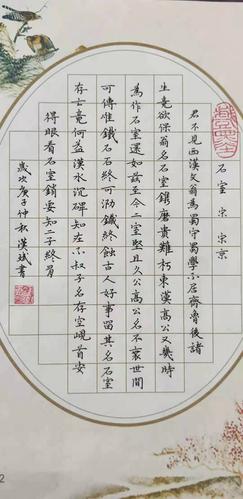 石室 宋 宋京
君不見西漢文翁為蜀守蜀學不居齊魯後諸
生竟欲保翁名石室鐫磨貴難朽東漢高公又幾時
為作石室還如茲至今二室堅且久公高公名不衰世間
可傳惟鐵石石終可泐鐵終蝕古人好事留其名石室
存亡竟何益漢水沉碑知在不叔子名存空峴首安
得眼看石室銷要知二子終
歲次庚子仲秋漢斌書
2